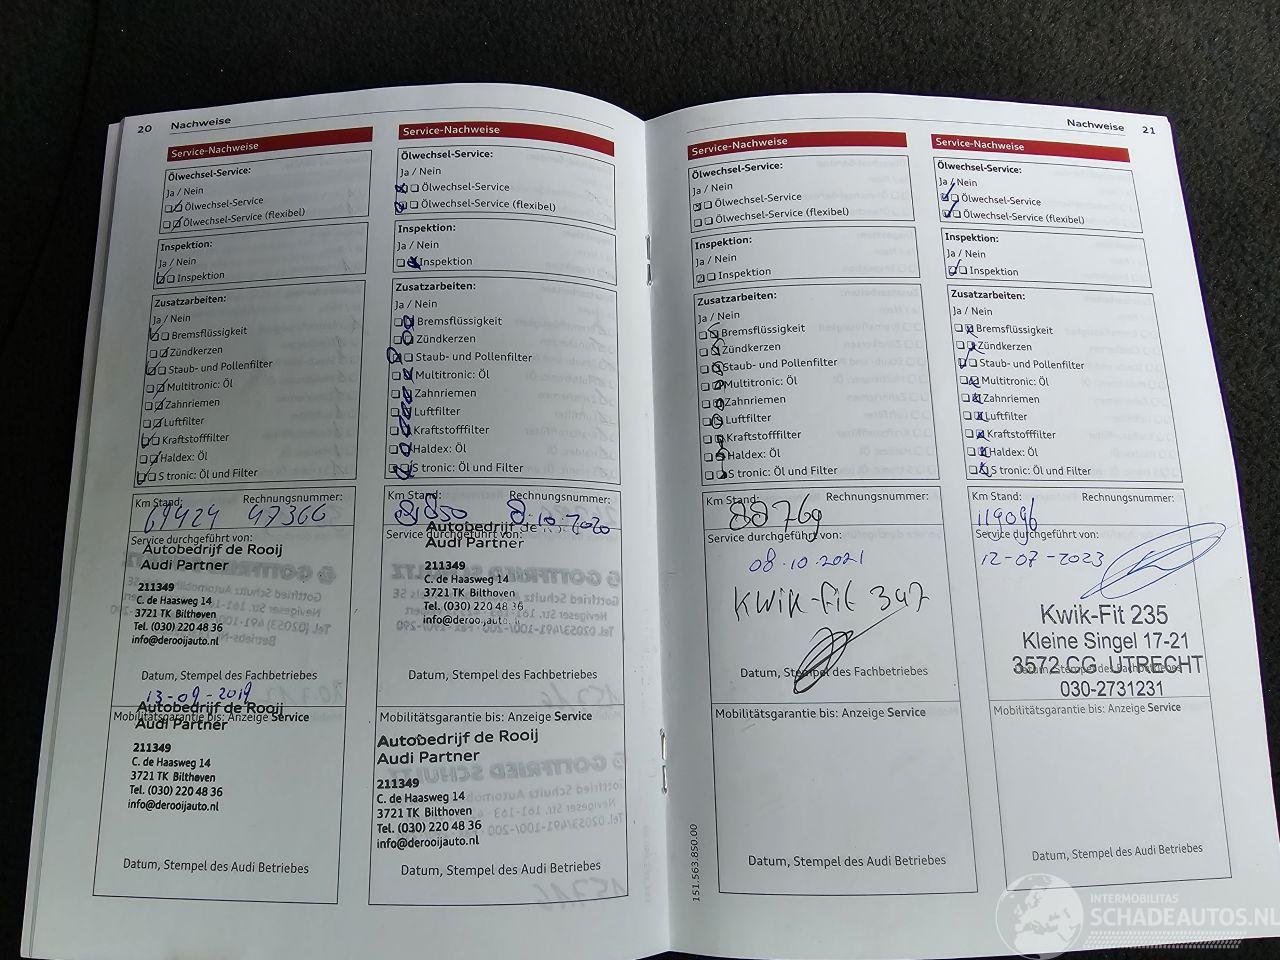 20 Nachweise
Service-Nachweise
Ölwechsel-Service:
Ja / Nein
Ölwechsel-Service
Ölwechsel-Service (flexibel)
Inspektion:
Ja / Nein
Inspektion
Zusatzarbeiten:
Ja / Nein
Bremsflüssigkeit
Zündkerzen
Staub- und Pollenfilter
Multitronic: Öl
Zahnriemen
Luftfilter
Kraftstofffilter
Haldex: Öl
S tronic: Öl und Filter
Km Stand: Rechnungsnummer:
69424 47366
Service durchgeführt von:
Autobedrijf de Rooij
Audi Partner
211349
C. de Haasweg 14
3721 TK Bilthoven
Tel. (030) 220 48 36
info@derooijauto.nl
Datum, Stempel des Fachbetriebes
13-09-2019
Autobedrijf de Rooij
Mobilitätsgarantie bis: Anzeige Service
Audi Partner
211349
C. de Haasweg 14
3721 TK Bilthoven
Tel. (030) 220 48 36
info@derooijauto.nl
Datum, Stempel des Audi Betriebes
Service-Nachweise
Ölwechsel-Service:
Ja / Nein
Ölwechsel-Service
Ölwechsel-Service (flexibel)
Inspektion:
Ja / Nein
Inspektion
Zusatzarbeiten:
Ja / Nein
Bremsflüssigkeit
Zündkerzen
Staub- und Pollenfilter
Multitronic: Öl
Zahnriemen
Luftfilter
Kraftstofffilter
Haldex: Öl
S tronic: Öl und Filter
Km Stand: Rechnungsnummer:
8.10.2020
Autobedrijf de Rooij
Service durchgeführt von:
Audi Partner
211349
C. de Haasweg 14
3721 TK Bilthoven
Tel. (030) 220 48 36
info@derooijauto.nl
Datum, Stempel des Fachbetriebes
Mobilitätsgarantie bis: Anzeige Service
Autobedrijf de Rooij
Audi Partner
211349
C. de Haasweg 14
3721 TK Bilthoven
Tel. (030) 220 48 36
info@derooijauto.nl
Datum, Stempel des Audi Betriebes
Nachweise 21
Service-Nachweise
Ölwechsel-Service:
Ja / Nein
Ölwechsel-Service
Ölwechsel-Service (flexibel)
Inspektion:
Ja / Nein
Inspektion
Zusatzarbeiten:
Ja / Nein
Bremsflüssigkeit
Zündkerzen
Staub- und Pollenfilter
Multitronic: Öl
Zahnriemen
Luftfilter
Kraftstofffilter
Haldex: Öl
S tronic: Öl und Filter
Km Stand: Rechnungsnummer:
88769
Service durchgeführt von:
08.10.2021
Kwik-Fit 347
Datum, Stempel des Fachbetriebes
Mobilitätsgarantie bis: Anzeige Service
Datum, Stempel des Audi Betriebes
151.563.850.00
Service-Nachweise
Ölwechsel-Service:
Ja / Nein
Ölwechsel-Service
Ölwechsel-Service (flexibel)
Inspektion:
Ja / Nein
Inspektion
Zusatzarbeiten:
Ja / Nein
Bremsflüssigkeit
Zündkerzen
Staub- und Pollenfilter
Multitronic: Öl
Zahnriemen
Luftfilter
Kraftstofffilter
Haldex: Öl
S tronic: Öl und Filter
Km Stand: Rechnungsnummer:
119096
Service durchgeführt von:
12-07-2023
Kwik-Fit 235
Kleine Singel 17-21
3572 CG UTRECHT
Datum, Stempel des Fachbetriebes
030-2731231
Mobilitätsgarantie bis: Anzeige Service
Datum, Stempel des Audi Betriebes
INTERMOBILITAS
SCHADEAUTOS.NL